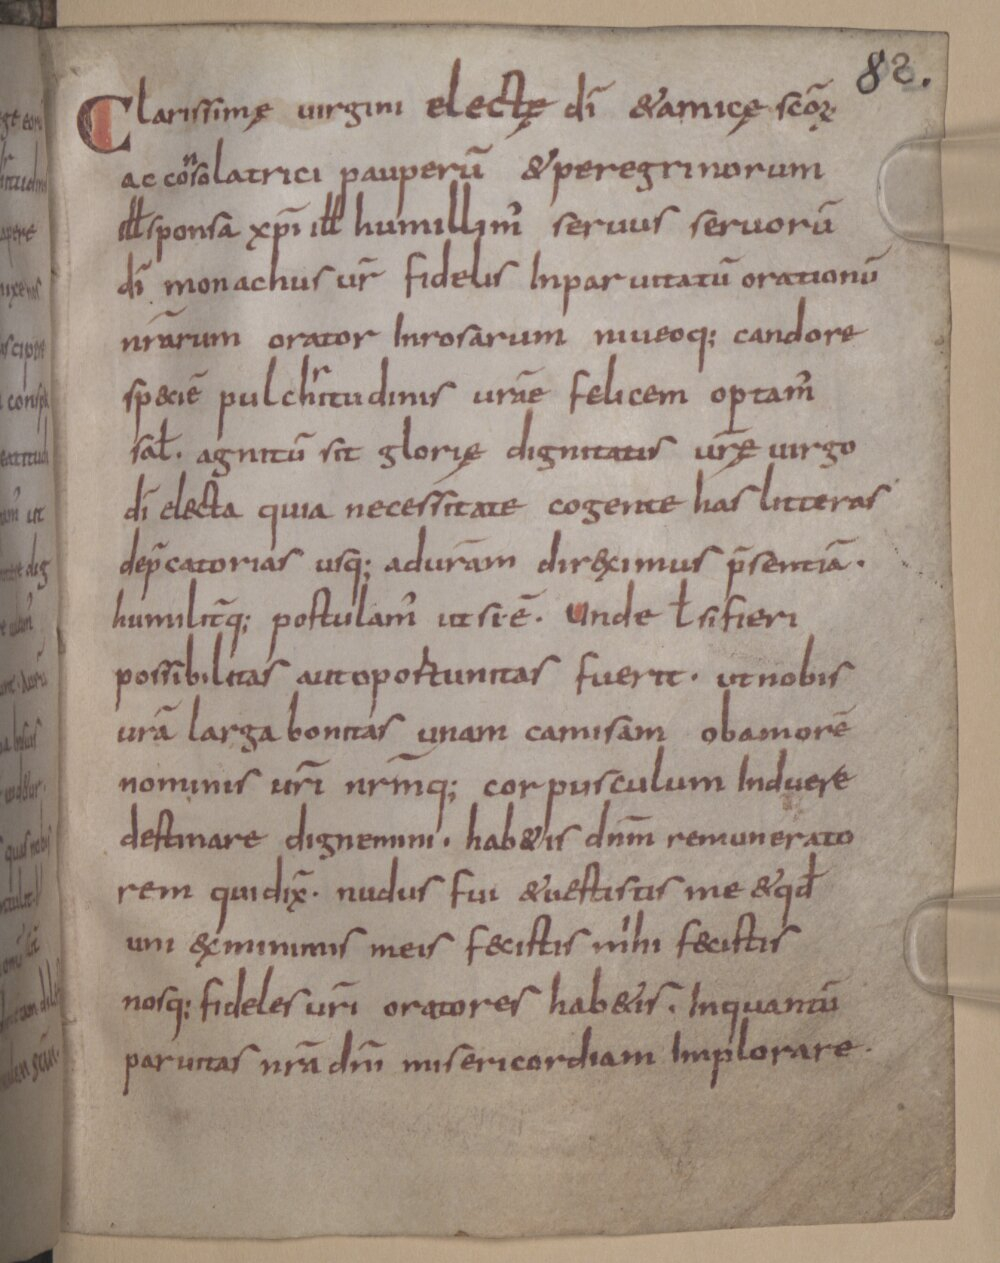 82.
Clarissimę virgini electę dī &amicę scōꝝ
ac consolatrici pauperū &peregrinorum
ill sponsā xp̄i ill humillim̄ servus servorū
dī monachus vr̄ fidelis Inparvitatū orationū
nrārum orator Inrosarum niveoq; candore
sp&iē pulchritudinis vrāe felicem optam̄
sal̄. agnitū sit glorię dignitatis vr̄ę virgo
dī electa quia necessitate cogente has litteras
dep̄catorias usq; advrām direximus p̄sentiā.
humilit̄q; postulam̄ ut si ē. Unde ł si fieri
possibilitas aut oportunitas fuerit. ut nobis
vrā larga bonitas unam camisam obamorē
nominis vrī nrm̄q; corpusculum Induere
destinare dignemini. hab&is dnm̄ remunerato
rem quidix̄. nudus fui &vestistis me &qd̄
uni &minimis meis fecistis mihi fecistis
nosq; fideles vrī oratores hab&is. Inquantū
parvitas nrā dnī misericordiam Implorare.